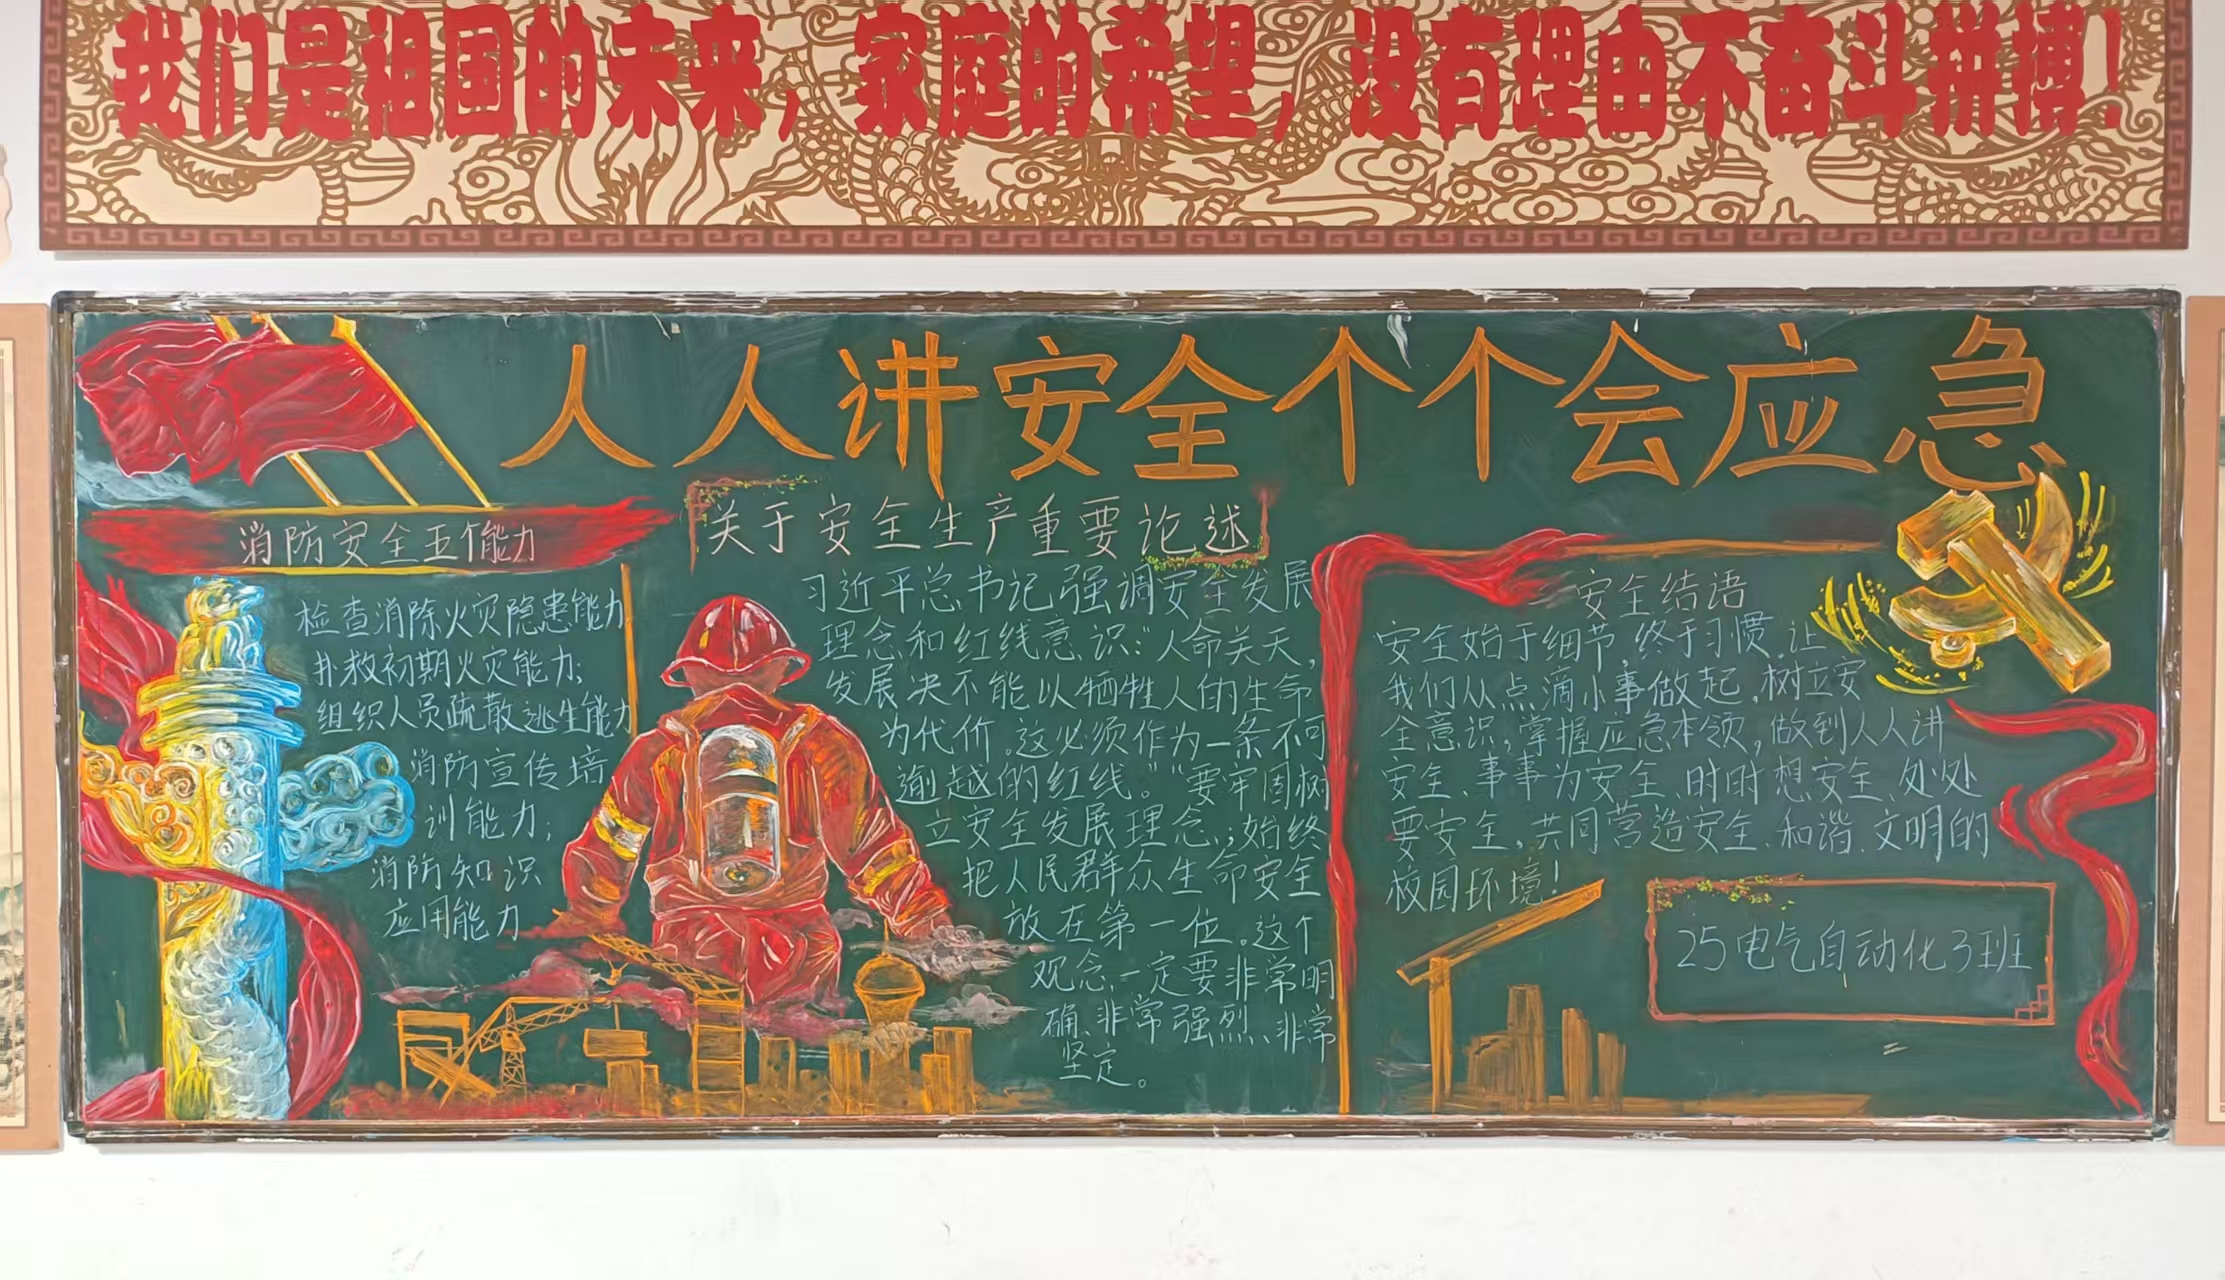 我们是祖国的未来，家庭的希望，没有理由不奋斗拼搏！
人人讲安全个个会应急
消防安全五个能力
检查消除火灾隐患能力
扑救初期火灾能力；
组织人员疏散逃生能力
消防宣传培
训能力；
消防知识
应用能力
关于安全生产重要论述
习近平总书记强调安全发展
理念和红线意识：“人命关天，
发展决不能以牺牲人的生命
为代价。这必须作为一条不可
逾越的红线。”“要牢固树
立安全发展理念，；始终
把人民群众生命安全
放在第一位。这个
观念一定要非常明
确、非常强烈、非常
坚定。
安全结语
安全始于细节，终于习惯。让
我们从点滴小事做起，树立安
全意识，掌握应急本领，做到人人讲
安全、事事为安全、时时想安全、处处
要安全，共同营造安全、和谐、文明的
校园环境！
25电气自动化3班